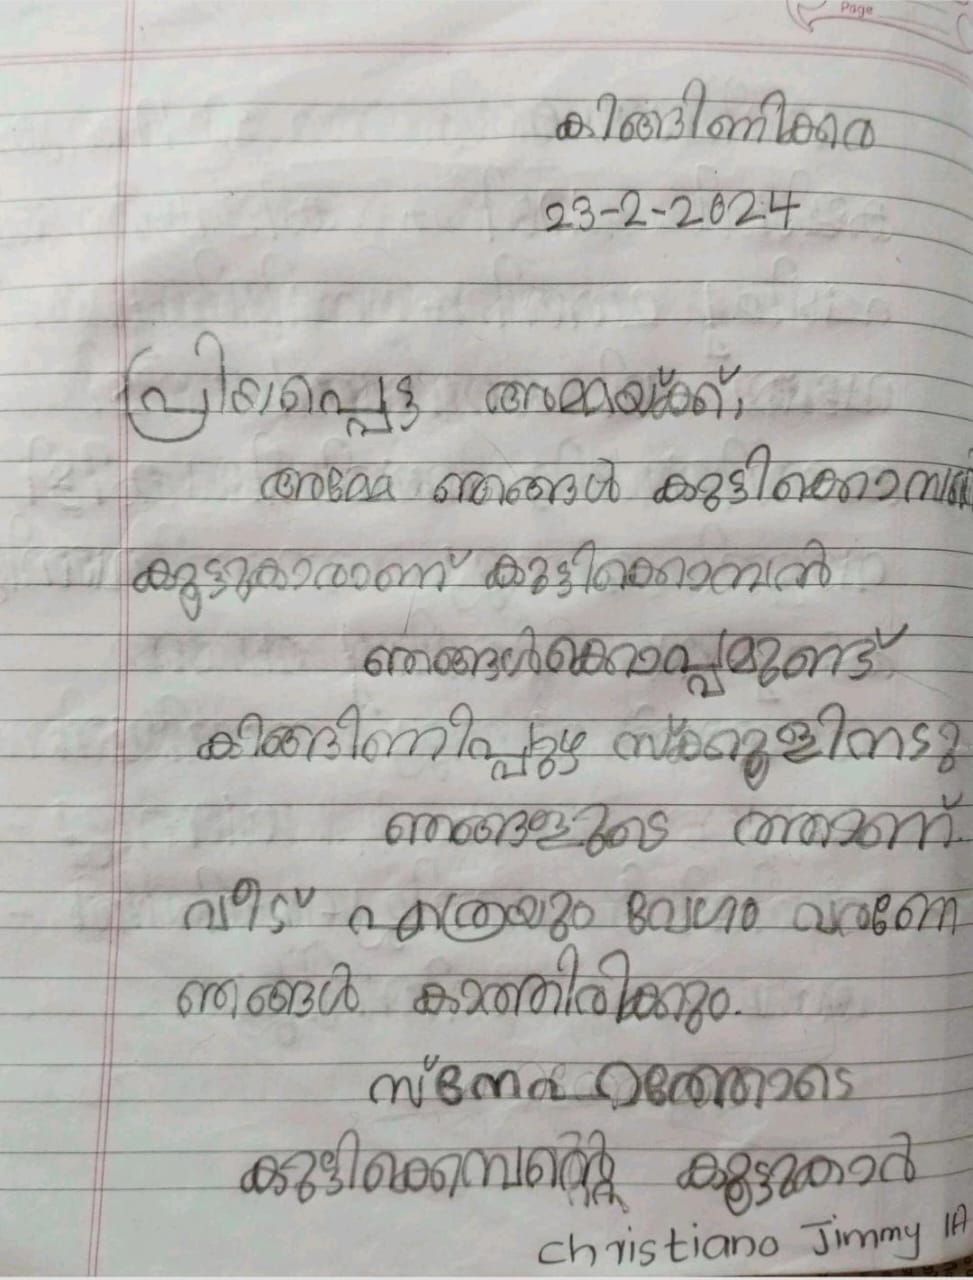 Page
കിങ്ങിണിക്കര
23-2-2024
പ്രിയപ്പെട്ട അമ്മയ്ക്ക്,
അമ്മേ ഞങ്ങൾ കുട്ടിക്കൊമ്പന്റെ
കൂട്ടുകാരാണ് കുട്ടിക്കൊമ്പൻ
ഞങ്ങൾക്കൊപ്പമുണ്ട്
കിങ്ങിണിപ്പുഴ സ്ക്കൂളിനടു
ഞങ്ങളുടെ ത്താണ്
വീട് എത്രയും വേഗം വരണേ
ഞങ്ങൾ കാത്തിരിക്കും.
സ്നേഹത്തോടെ
കുട്ടിക്കൊമ്പന്റെ കൂട്ടുകാർ
Christiano Jimmy 1A